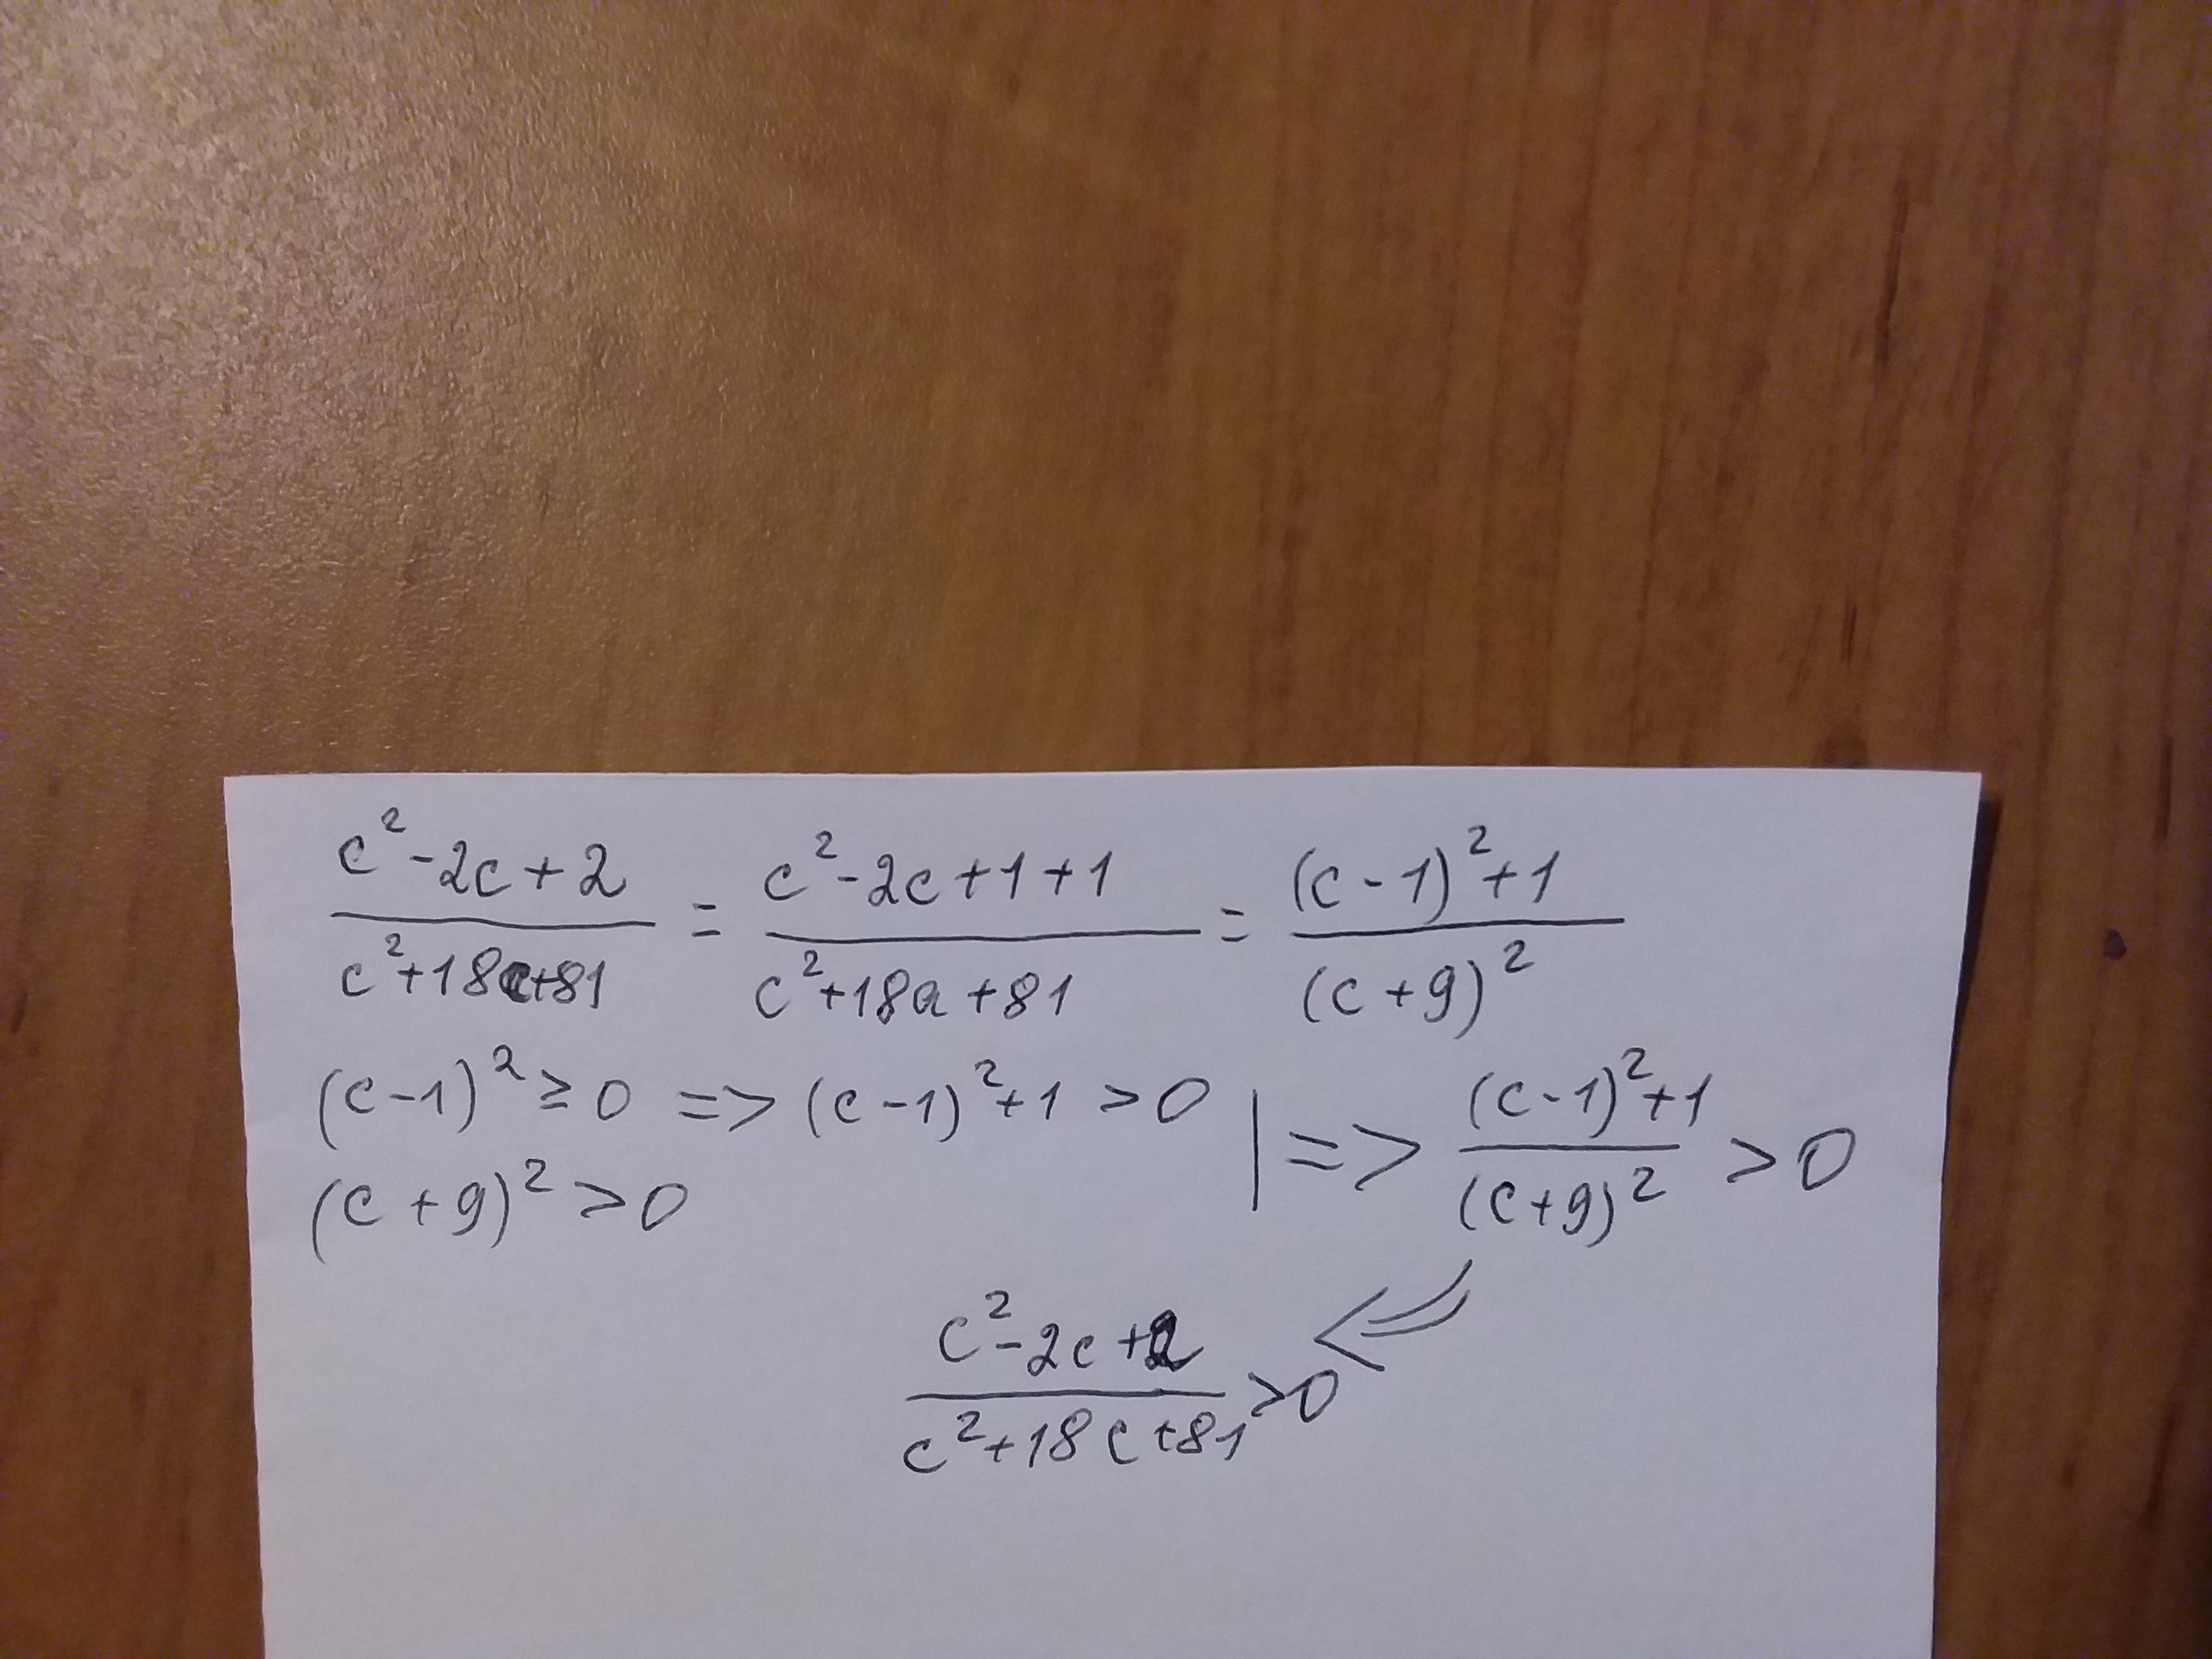 (c² - 2c + 2)/(c² + 18c + 81) = (c² - 2c + 1 + 1)/(c² + 18a + 81) = ((c - 1)² + 1)/(c + 9)²
(c - 1)² ≥ 0 => (c - 1)² + 1 > 0 | => ((c - 1)² + 1)/(c + 9)² > 0
(c + 9)² > 0
(c² - 2c + 2)/(c² + 18c + 81) > 0